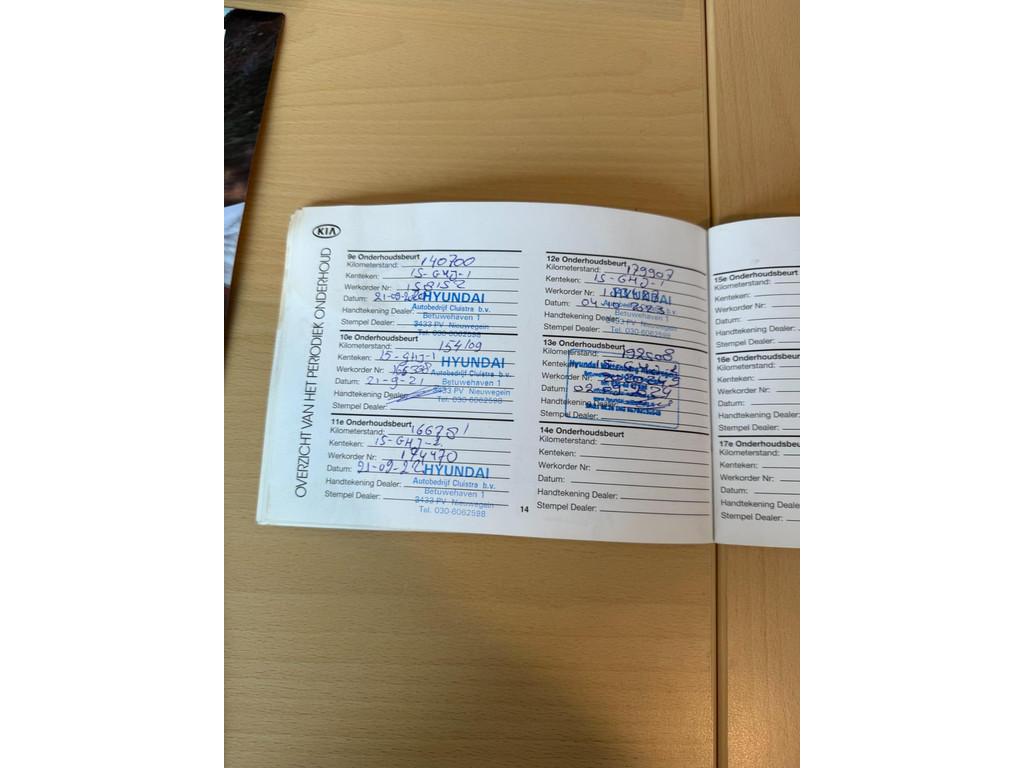 KIA
OVERZICHT VAN HET PERIODIEK ONDERHOUD
9e Onderhoudsbeurt
Kilometerstand: 140700
Kenteken: 15-GHJ-1
Werkorder Nr: 158152
Datum: 21-09-2020
Handtekening Dealer:
Stempel Dealer:
HYUNDAI
Autobedrijf Cluistra b.v.
Betuwehaven 1
3433 PV Nieuwegein
Tel. 030-6062598
10e Onderhoudsbeurt
Kilometerstand: 154109
Kenteken: 15-GHJ-1
Werkorder Nr: 166398
Datum: 21-9-21
Handtekening Dealer:
Stempel Dealer:
HYUNDAI
Autobedrijf Cluistra b.v.
Betuwehaven 1
3433 PV Nieuwegein
Tel. 030-6062598
11e Onderhoudsbeurt
Kilometerstand: 166781
Kenteken: 15-GHJ-1
Werkorder Nr: 174470
Datum: 21-09-22
Handtekening Dealer:
Stempel Dealer:
HYUNDAI
Autobedrijf Cluistra b.v.
Betuwehaven 1
3433 PV Nieuwegein
Tel. 030-6062598
14
12e Onderhoudsbeurt
Kilometerstand: 179907
Kenteken: 15-GHJ-1
Werkorder Nr:
Datum: 04-10-2023
Handtekening Dealer:
Stempel Dealer:
HYUNDAI
Betuwehaven 1
3433 PV Nieuwegein
Tel. 030-6062598
13e Onderhoudsbeurt
Kilometerstand: 192598
Kenteken:
Werkorder Nr:
Datum: 02-09-2024
Handtekening Dealer:
Stempel Dealer:
Hyundai
14e Onderhoudsbeurt
Kilometerstand:
Kenteken:
Werkorder Nr:
Datum:
Handtekening Dealer:
Stempel Dealer:
15e Onderhoudsbeurt
Kilometerstand:
Kenteken:
Werkorder Nr:
Datum:
Handtekening Dealer:
Stempel Dealer:
16e Onderhoudsbeurt
Kilometerstand:
Kenteken:
Werkorder Nr:
Datum:
Handtekening Dealer:
Stempel Dealer:
17e Onderhoudsbeurt
Kilometerstand:
Kenteken:
Werkorder Nr:
Datum:
Handtekening Dealer:
Stempel Dealer: